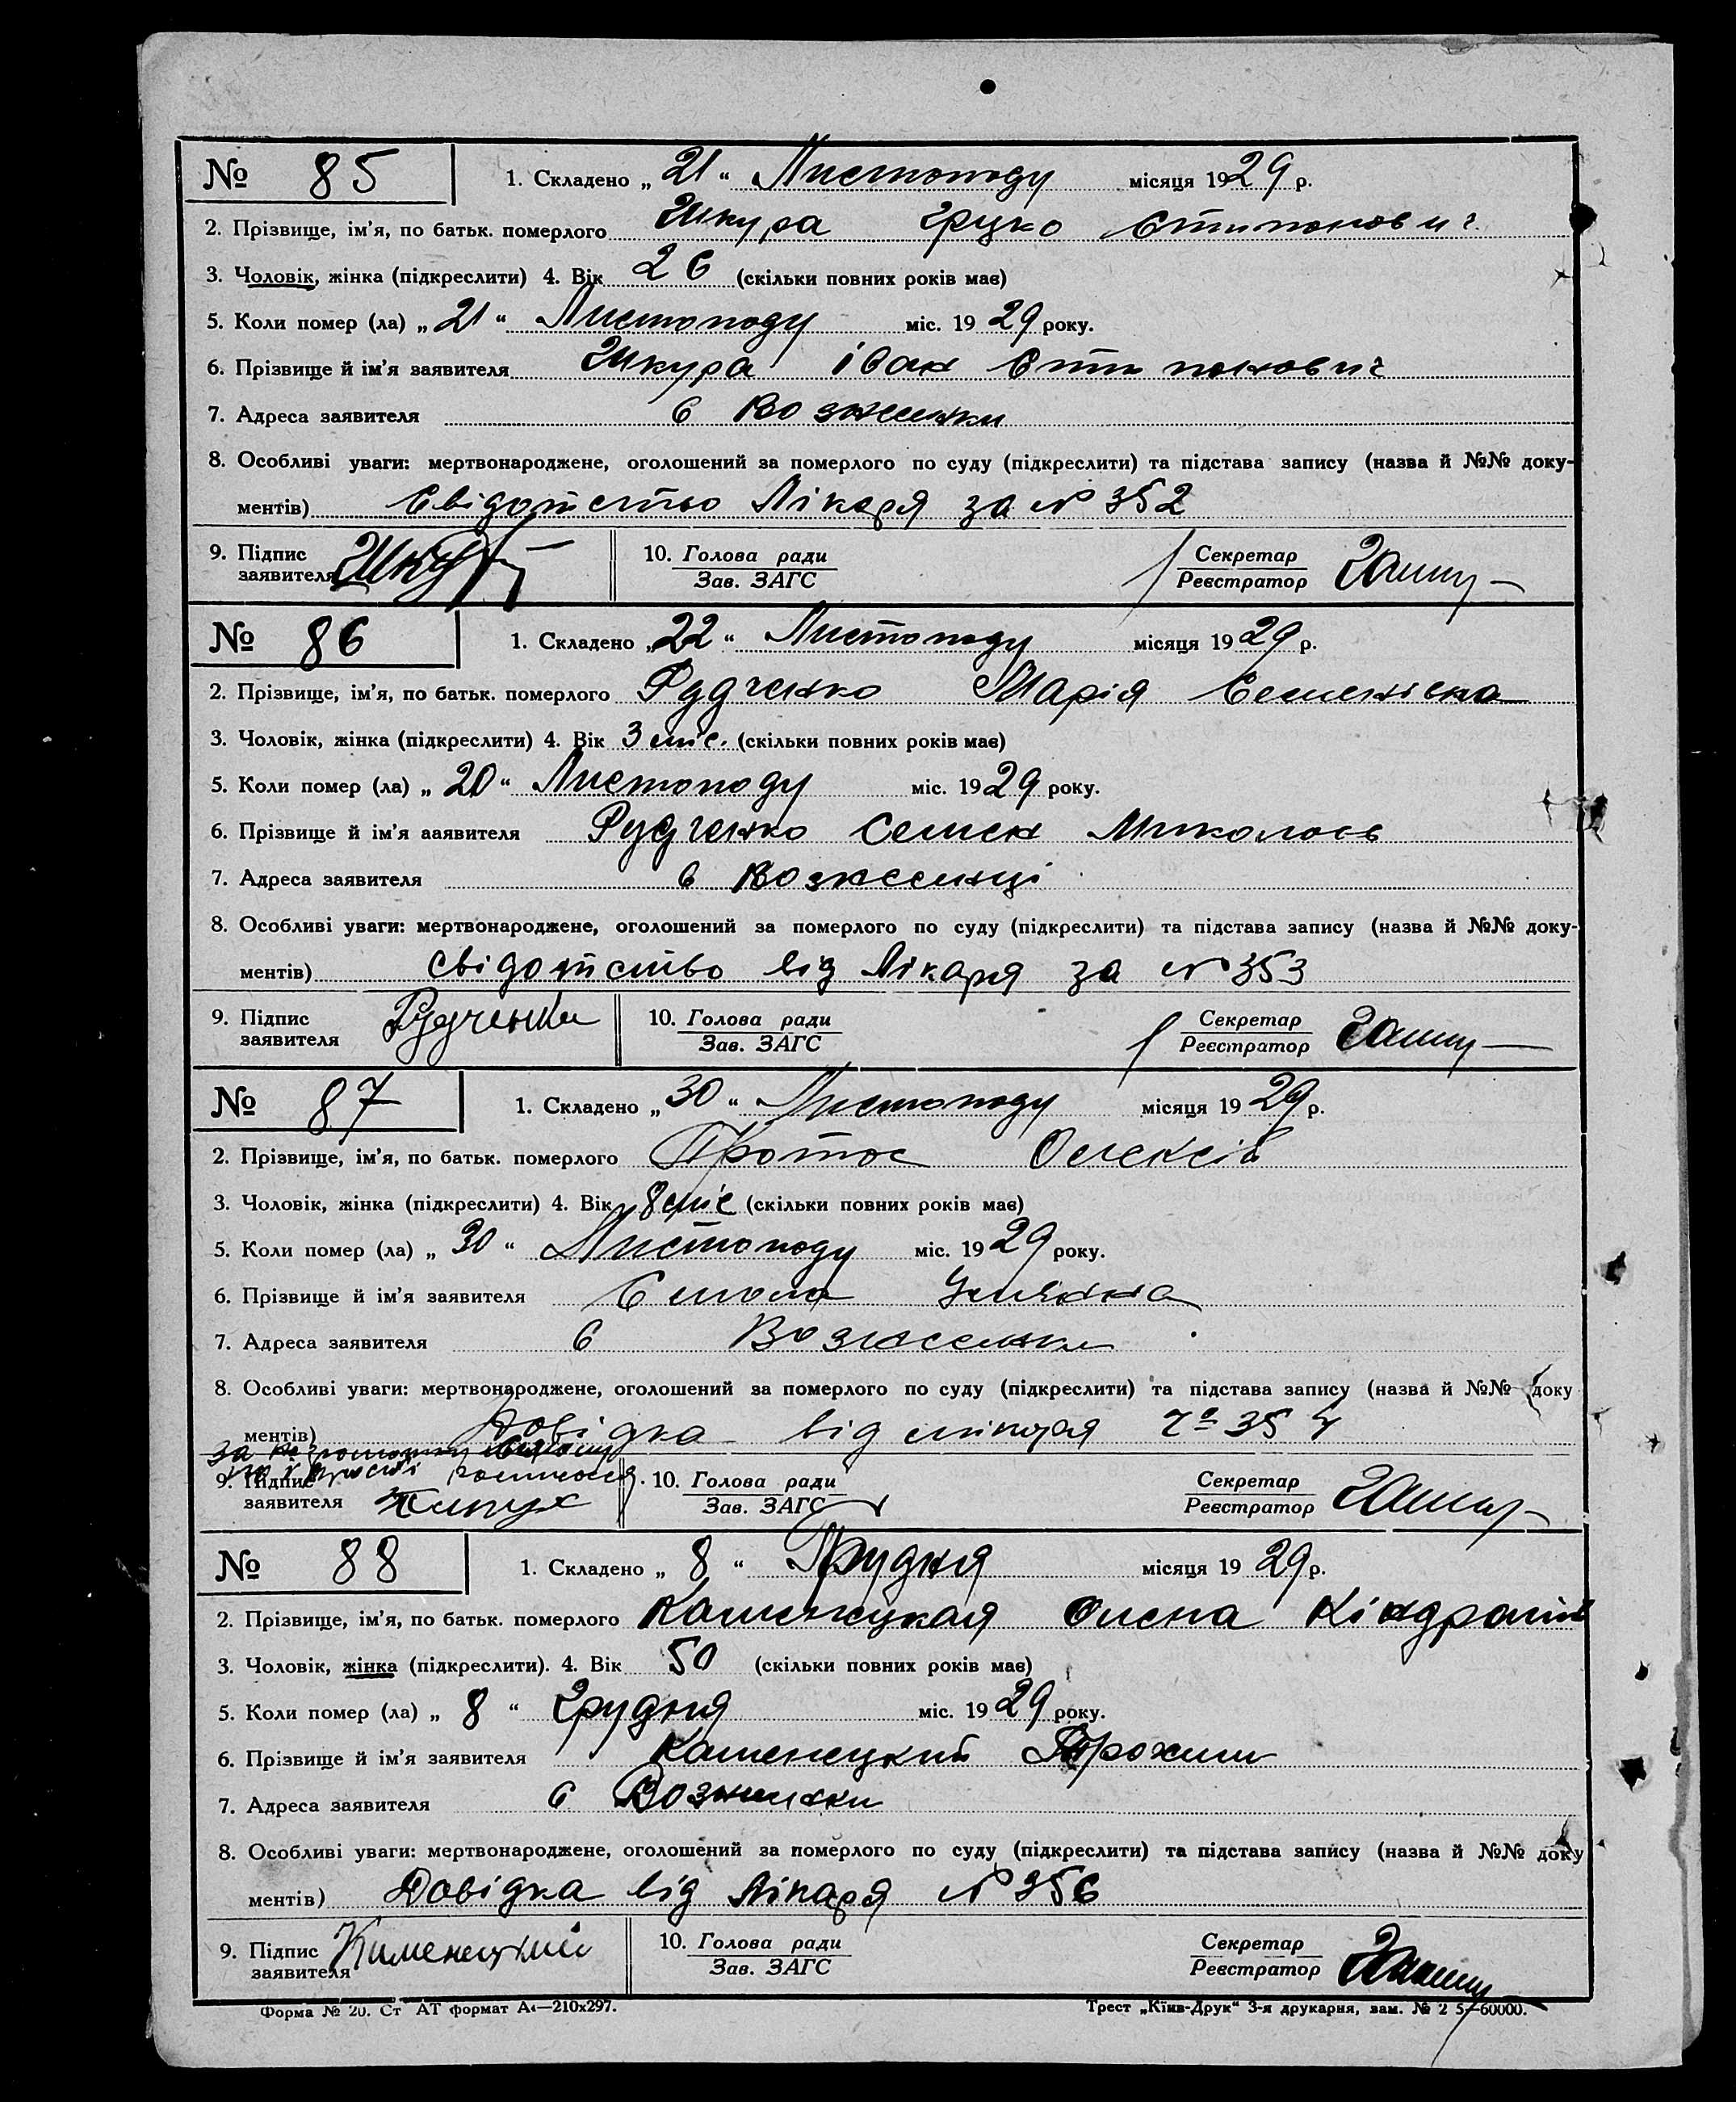 № 85 1. Складено „ 21 “ Листопаду місяця 1929 р.
2. Прізвище, ім’я, по батьк. померлого Шкура Грицко
3. Чоловік, жінка (підкреслити) 4. Вік 26 (скільки повних років має)
5. Коли помер (ла) „ 21 “ Листопаду міс. 1929 року.
6. Прізвище й ім’я заявителя Шкура іван
7. Адреса заявителя с
8. Особливі уваги: мертвонароджене, оголошений за померлого по суду (підкреслити) та підстава запису (назва й №№ доку-
ментів) Свідотство Лікаря за № 352
9. Підпис 10. Голова ради Секретар
заявителя Зав. ЗАГС Реєстратор
№ 86 1. Складено „ 22 “ Листопаду місяця 1929 р.
2. Прізвище, ім’я, по батьк. померлого Рудченко Марія Семенівна
3. Чоловік, жінка (підкреслити) 4. Вік 3 міс. (скільки повних років має)
5. Коли помер (ла) „ 20 “ Листопаду міс. 1929 року.
6. Прізвище й ім’я ааявителя Рудченко Семен Миколов
7. Адреса заявителя с Вознесенці
8. Особливі уваги: мертвонароджене, оголошений за померлого по суду (підкреслити) та підстава запису (назва й №№ доку-
ментів) Свідотство від Лікаря за № 353
9. Підпис Рудченко 10. Голова ради Секретар
заявителя Зав. ЗАГС Реєстратор
№ 87 1. Складено „ 30 “ Листопаду місяця 1929 р.
2. Прізвище, ім’я, по батьк. померлого Олексів
3. Чоловік, жінка (підкреслити) 4. Вік 8 міс (скільки повних років має)
5. Коли помер (ла) „ 30 “ Листопаду міс. 1929 року.
6. Прізвище й ім’я заявителя
7. Адреса заявителя с Вознесенки
8. Особливі уваги: мертвонароджене, оголошений за померлого по суду (підкреслити) та підстава запису (назва й №№ доку
ментів) Довідка від лікаря
9. Підпис 10. Голова ради Секретар
заявителя Зав. ЗАГС Реєстратор
№ 88 1. Складено „ 8 “ Грудня місяця 1929 р.
2. Прізвище, ім’я, по батьк. померлого Каменецкая Олена Кіндратів
3. Чоловік, жінка (підкреслити). 4. Вік 50 (скільки повних років має)
5. Коли помер (ла) „ 8 “ Грудня міс. 1929 року.
6. Прізвище й ім’я заявителя Каменецкий Трохим
7. Адреса заявителя с
8. Особливі уваги: мертвонароджене, оголошений за померлого по суду (підкреслити) та підстава запису (назва й №№ доку
ментів) Довідка від Лікаря № 356
9. Підпис Каменецкий 10. Голова ради Секретар
заявителя Зав. ЗАГС Реєстратор
Форма № 20. Ст АТ формат А4—210х297. Трест „Київ-Друк“ 3-я друкарня, зам. №